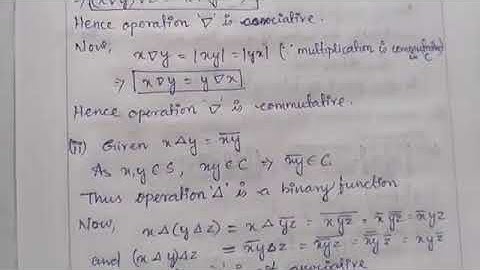 Hence operation '∇' is associative.
Now, x∇y = |xy| = |yx| (∵ multiplication is commutative)
⇒ x∇y = y∇x
Hence operation '∇' is commutative.
(ii) Given x△y = \overline{xy}
As x,y ∈ S, xy ∈ C ⇒ \overline{xy} ∈ C.
Thus operation '△' is a binary function
Now, x△(y△z) = x△\overline{yz} = \overline{x\overline{yz}} = \overline{x} \overline{\overline{yz}} = \overline{x}yz
and (x△y)△z = \overline{xy}△z = \overline{\overline{xy}z} = \overline{\overline{xy}} \overline{z} = xy\overline{z}
is not associative